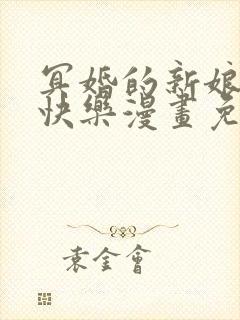 冥婚的新娘
快樂漫畫免
袁金會